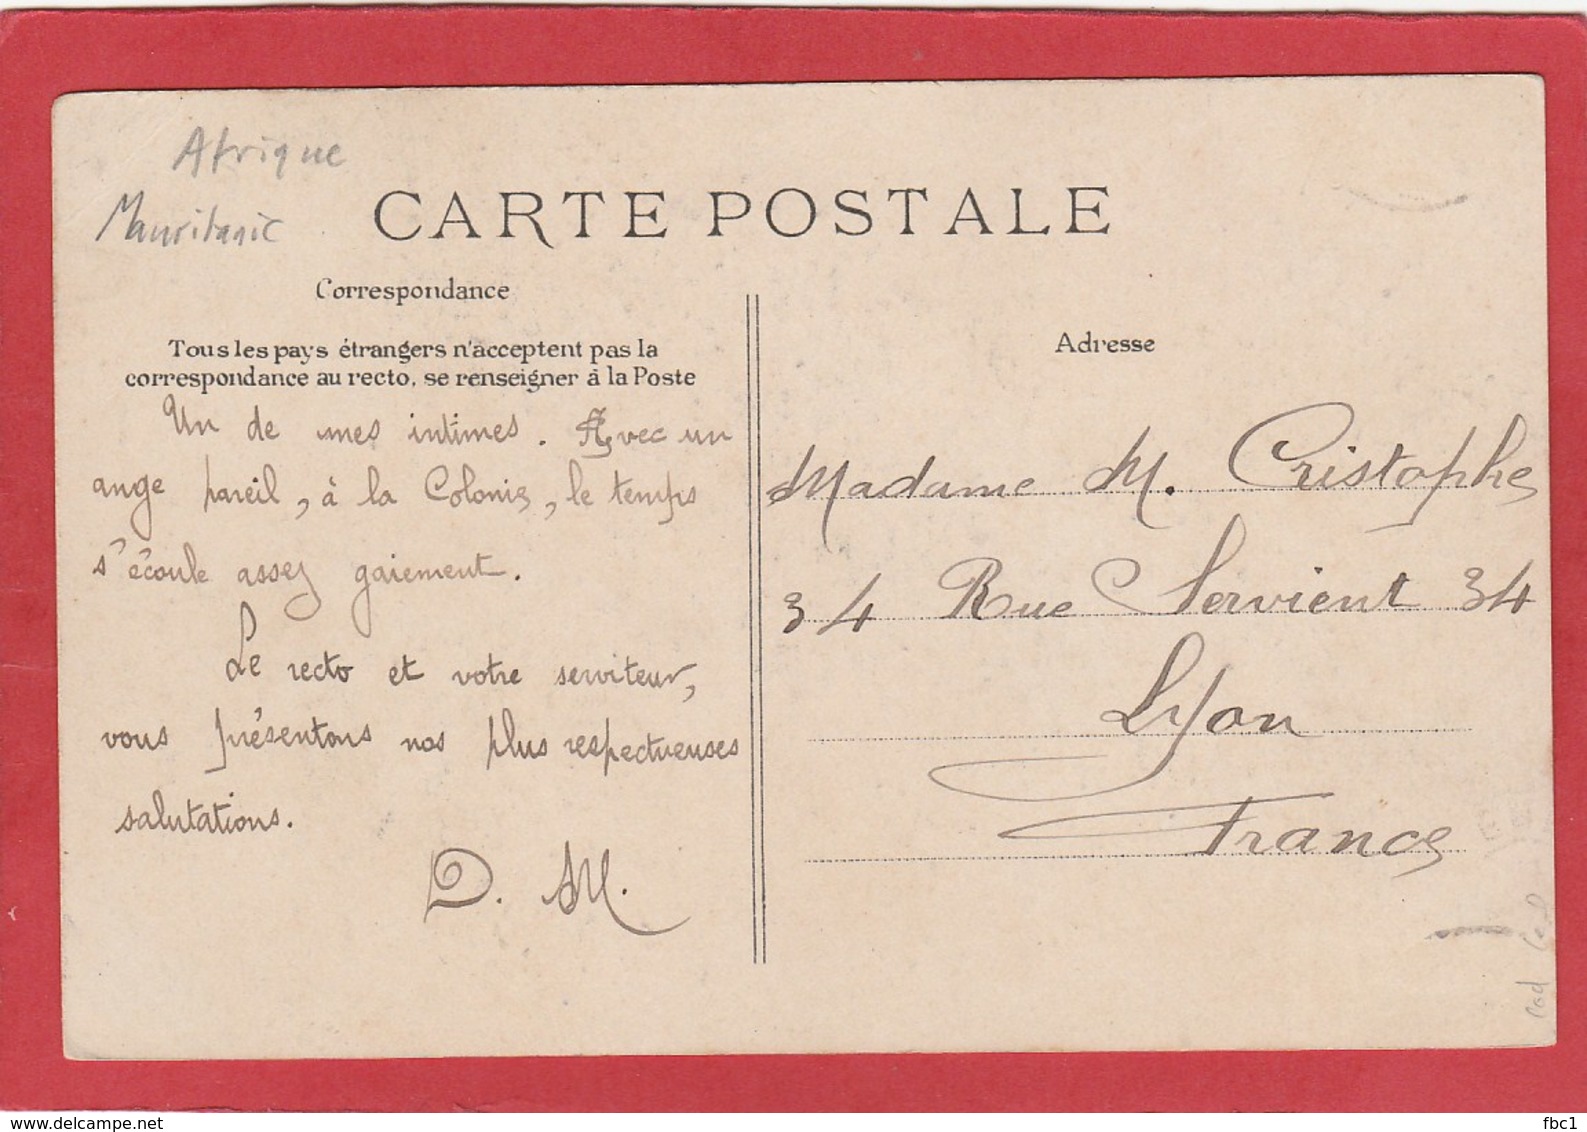 Afrique
Mauritanie
CARTE POSTALE
Correspondance
Tous les pays étrangers n'acceptent pas la
correspondance au recto, se renseigner à la Poste
Un de mes intimes. Avec un
ange pareil, à la Colonie, le temps
s'écoule assez gaiement.
Le recto et votre serviteur,
vous présentons nos plus respectueuses
salutations.
D. M.
Adresse
Madame M. Cristophe
34 Rue Servient 34
Lyon
France
cad
www.delcampe.net
fbc1